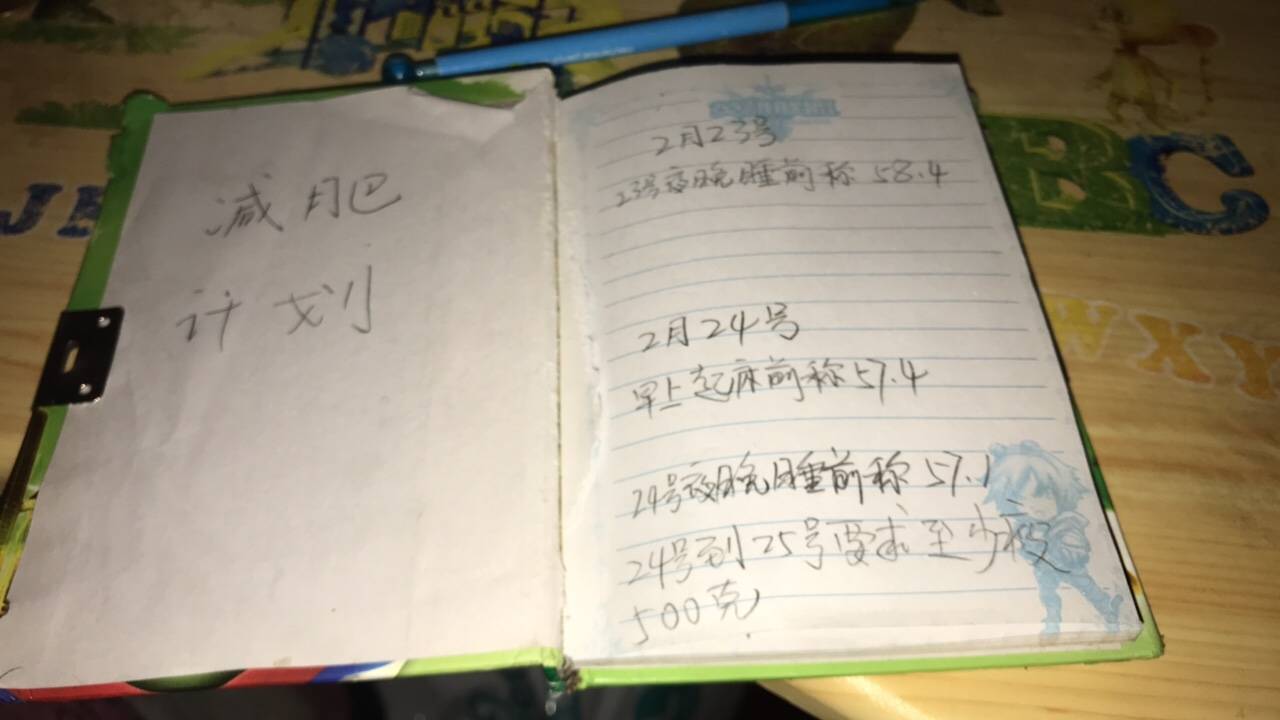 减肥
计划
2月23号
23号夜晚睡前称 58.4
2月24号
早上起床前称57.4
24号夜晚睡前称 57.1
24号到25号要求至少被
500克
BC
WXY